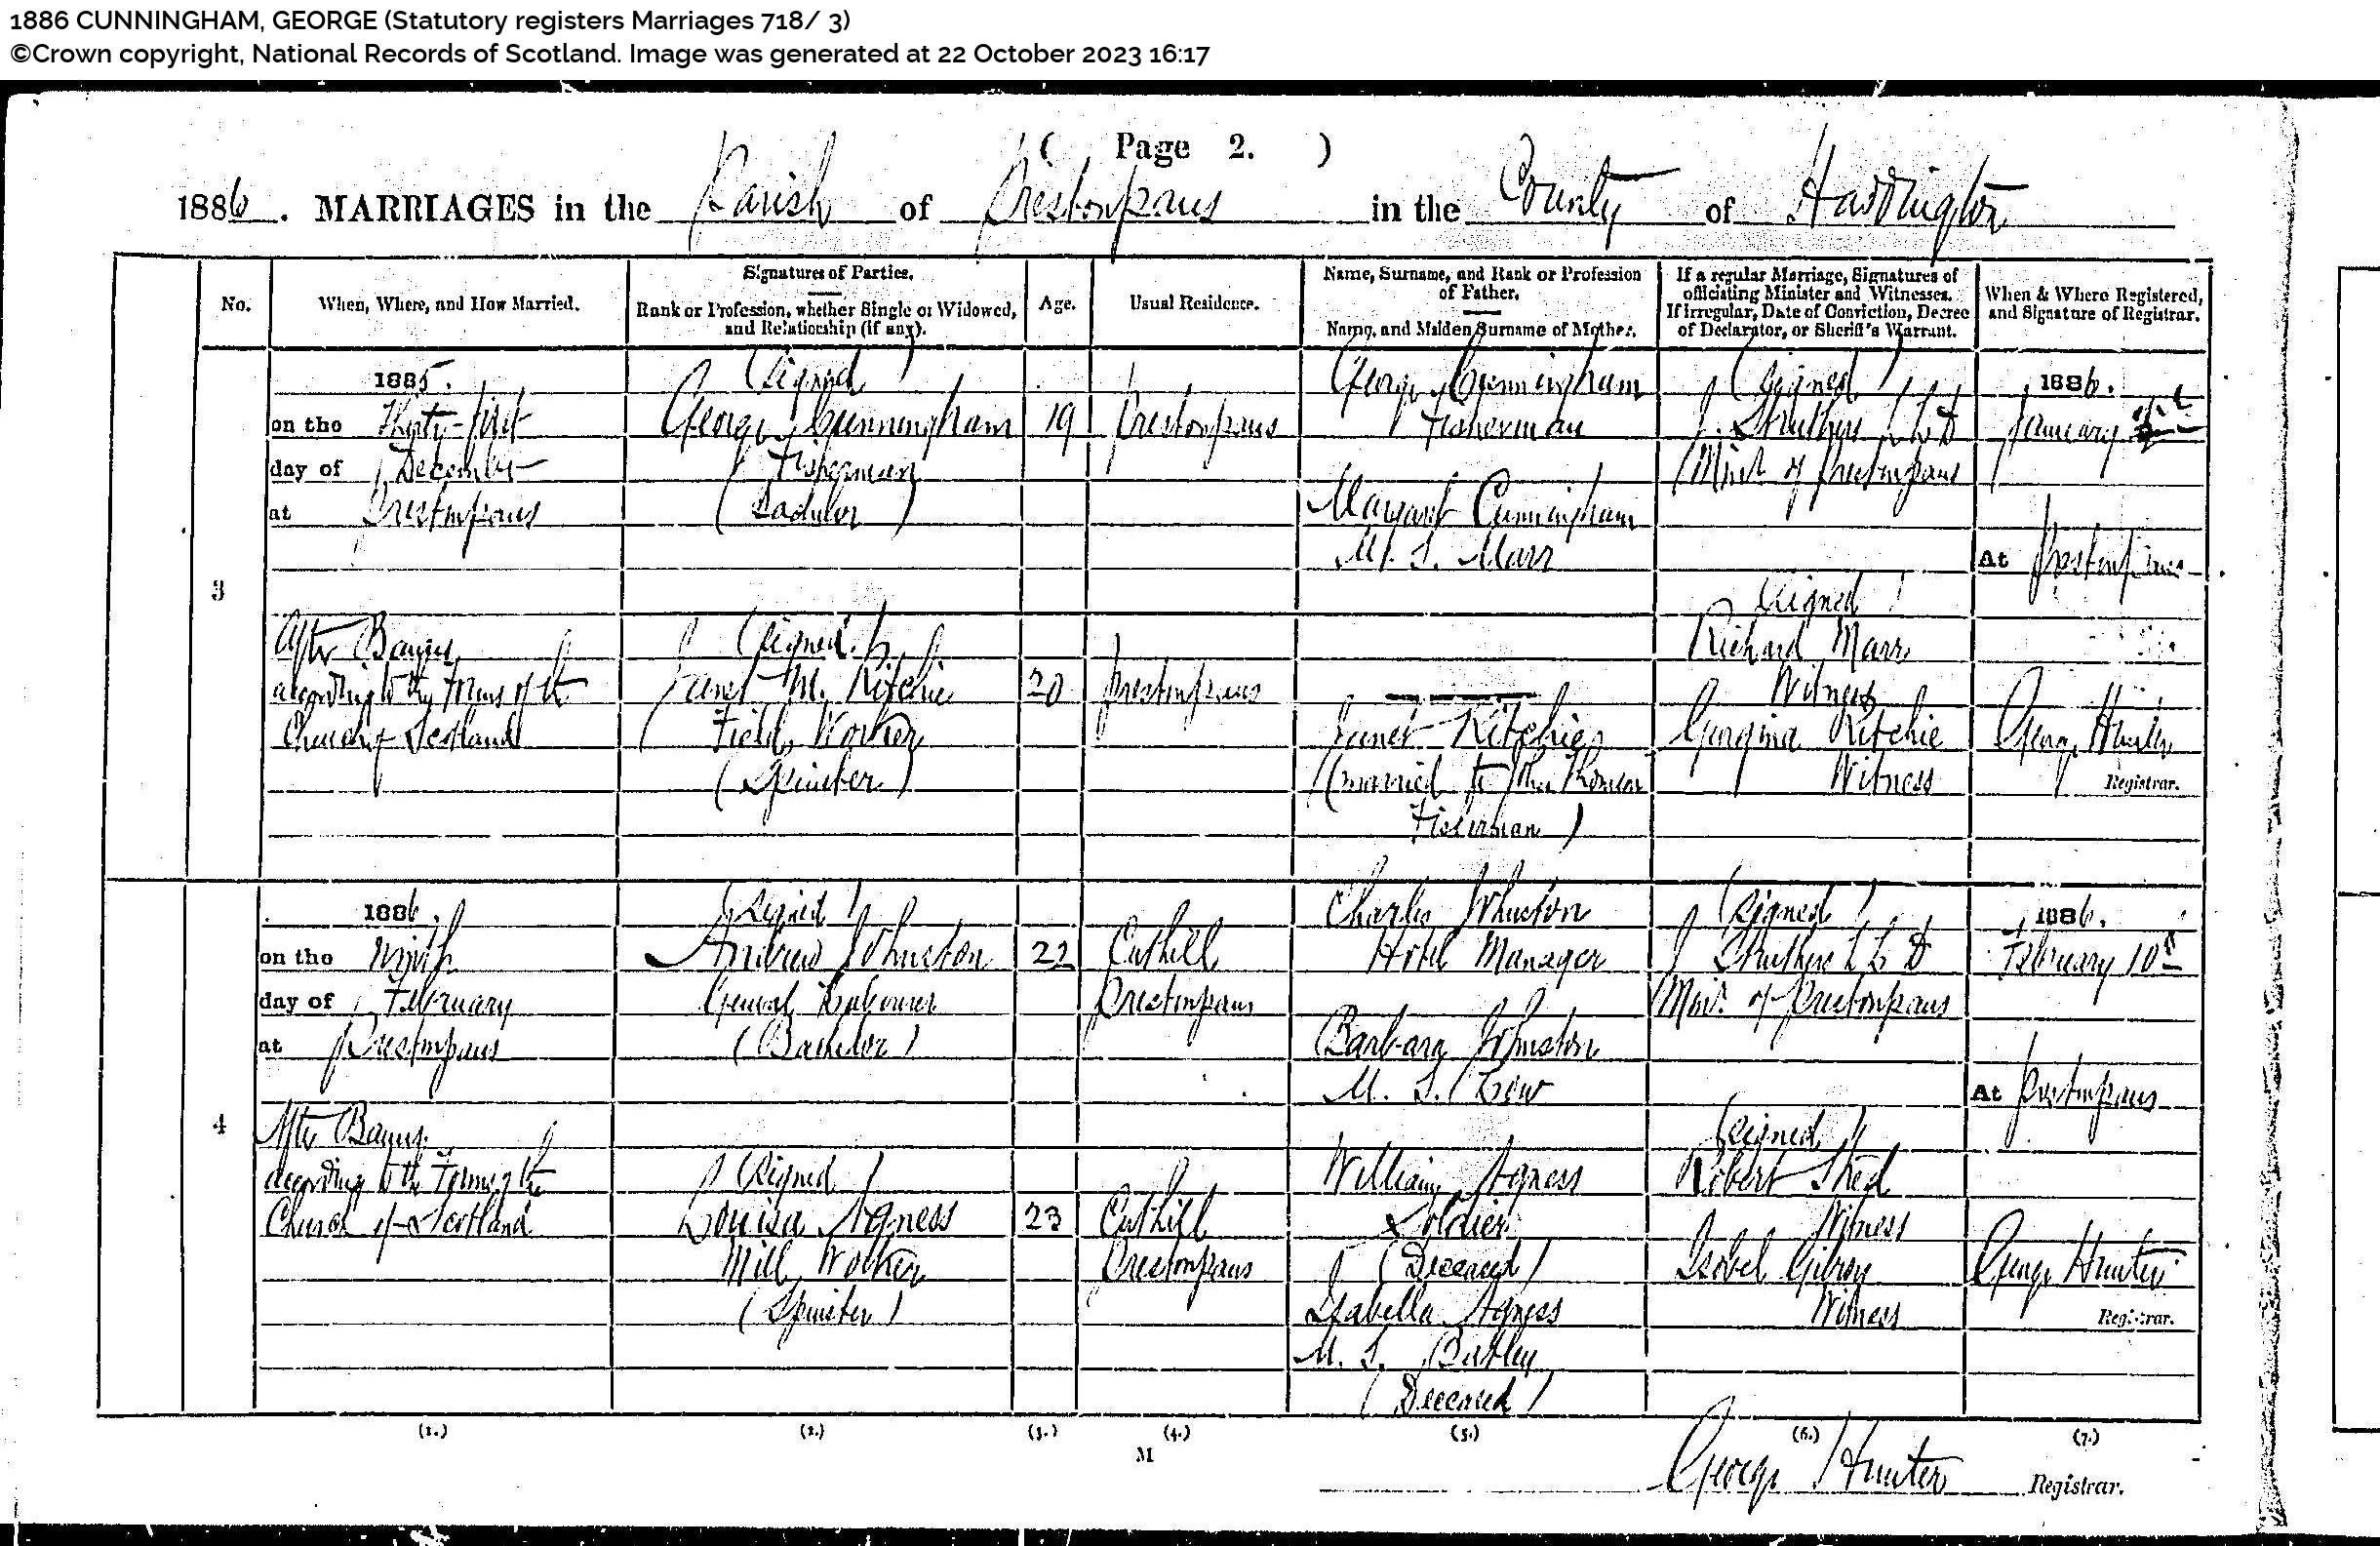 1886 CUNNINGHAM, GEORGE (Statutory registers Marriages 718/ 3)
©Crown copyright, National Records of Scotland. Image was generated at 22 October 2023 16:17
( Page 2. )
1886. MARRIAGES in the Parish of Prestonpans in the County of Haddington
No.
When, Where, and How Married.
Signatures of Parties.
Rank or Profession, whether Single or Widowed,
and Relationship (if any).
Age.
Usual Residence.
Name, Surname, and Rank or Profession
of Father.
Name, and Maiden Surname of Mother.
If a regular Marriage, Signatures of
officiating Minister and Witnesses.
If irregular, Date of Conviction, Decree
of Declarator, or Sheriff's Warrant.
When & Where Registered,
and Signature of Registrar.
3
1885.
on the Thirty-first
day of December
at Prestonpans
After Banns
according to the Forms of the
Church of Scotland
(Signed)
George Cunningham
Fisherman
(Bachelor)
19
Prestonpans
George Cunningham
Fisherman
Margaret Cunningham
M. S. Marr
(Signed)
J. Struthers LLD
Minr. of Prestonpans
1886.
January
At Prestonpans
(Signed)
Janet M. Ritchie
Field Worker
(Spinster)
20
Prestonpans
Janet Ritchie
(married to John Thomson
Fisherman)
(Signed)
Richard Marr
Witness
Georgina Ritchie
Witness
George Hunter
Registrar.
4
1886.
on the Ninth
day of February
at Prestonpans
After Banns
according to the Forms of the
Church of Scotland
(Signed)
Andrew Johnston
General Labourer
(Bachelor)
22
Cuthill
Prestonpans
Charles Johnston
Hotel Manager
Barbara Johnston
M. S. Low
(Signed)
J Struthers LLD
Minr. of Prestonpans
1886.
February 10th
At Prestonpans
(Signed)
Louisa Agness
Mill Worker
(Spinster)
23
Cuthill
Prestonpans
William Agness
Soldier
(Deceased)
Isabella Agness
M. S. Batley
(Deceased)
(Signed)
Robert Shed
Witness
Isobel Gilroy
Witness
George Hunter
Registrar.
(1.) (2.) (3.) (4.) (5.) (6.) (7.)
M
George Hunter Registrar.